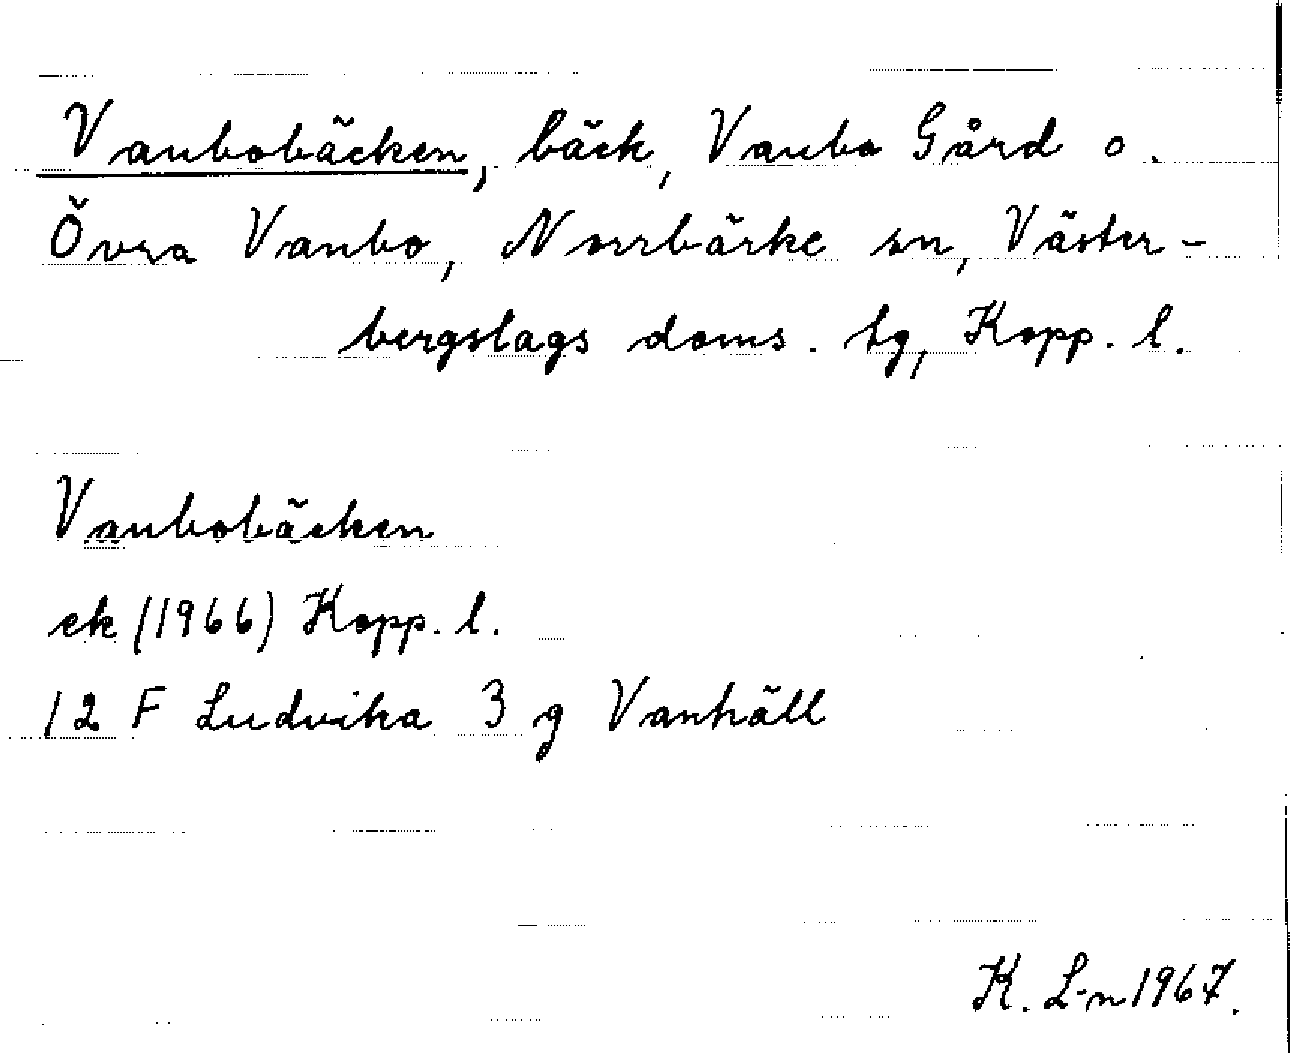 Vanbobäcken, bäck, Vanbo Gård o.
Övra Vanbo, Norrbärke sn, Väster-
bergslags doms. tg, Kopp. l.
Vanbobäcken
ek (1966) Kopp. l.
12 F Ludvika 3 g Vanhäll
K. L-n 1967.